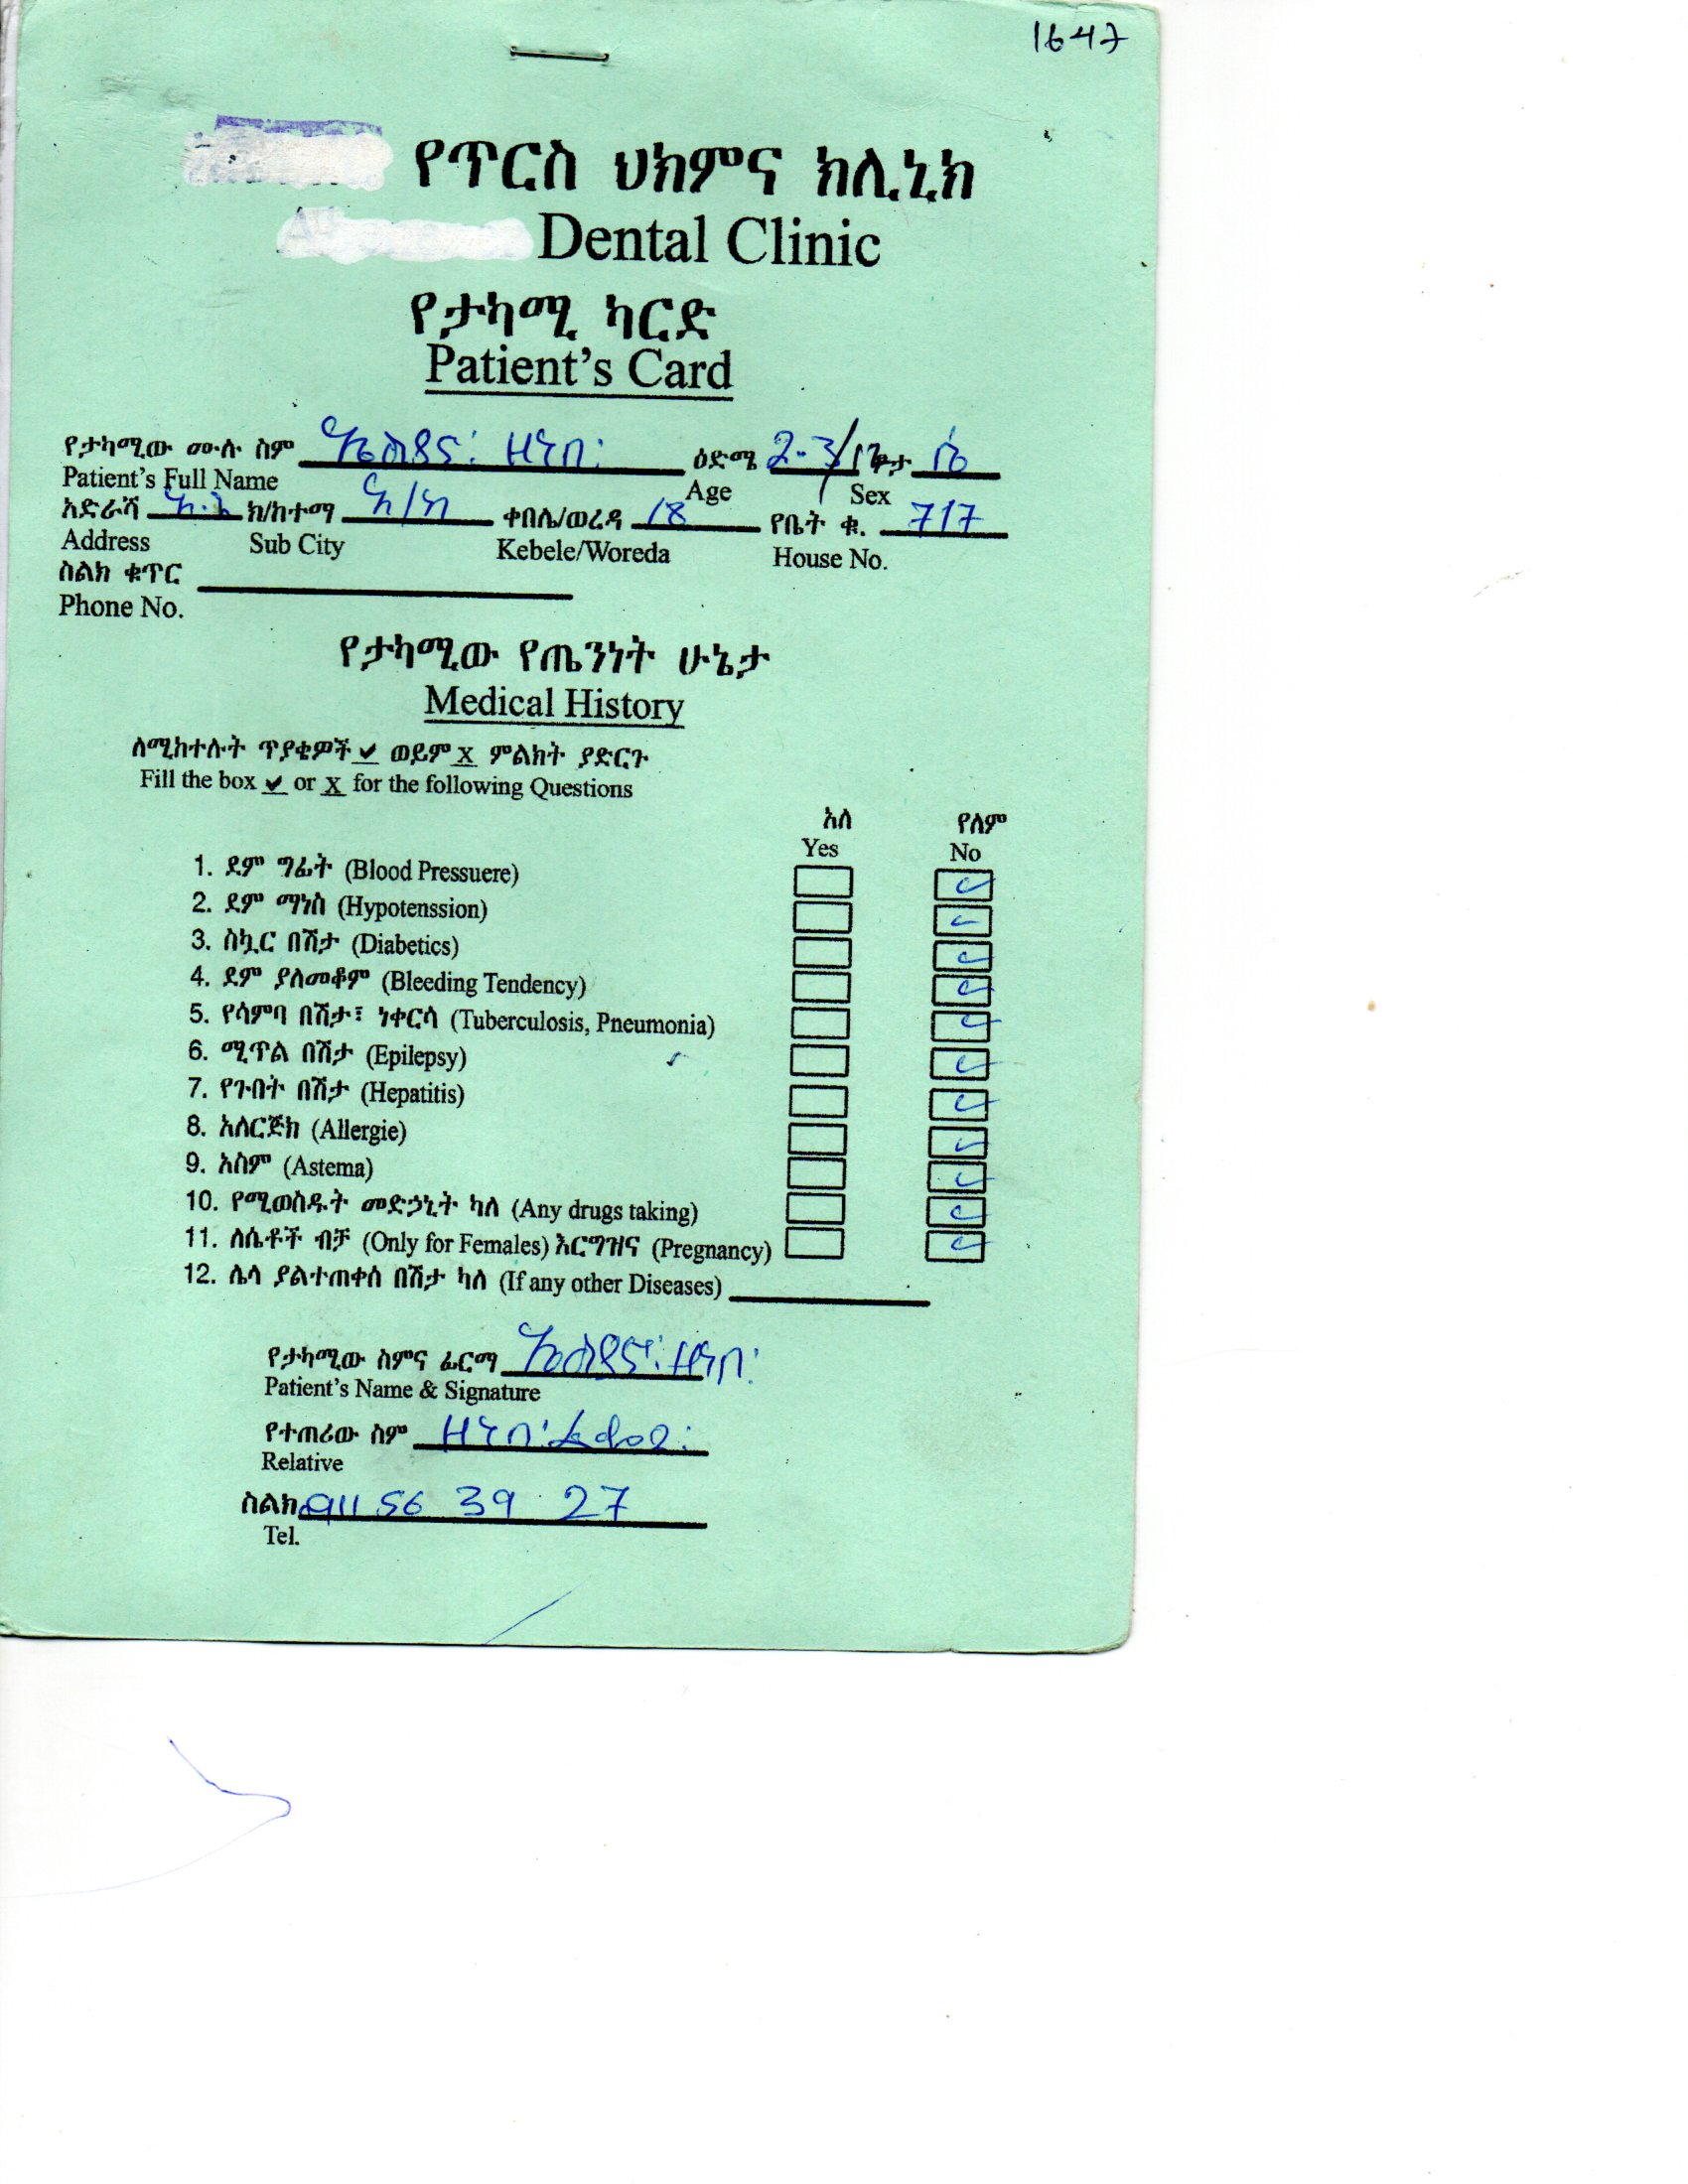 1647
የጥርስ ህክምና ክሊኒክ
Dental Clinic
የታካሚ ካርድ
Patient's Card
የታካሚው ሙሉ ስም ዘነበ ዕድሜ ፆታ
Patient's Full Name Age Sex
አድራሻ አ.አ ክ/ከተማ ቀበሌ/ወረዳ 18 የቤት ቁ. 717
Address Sub City Kebele/Woreda House No.
ስልክ ቁጥር
Phone No.
የታካሚው የጤንነት ሁኔታ
Medical History
ለሚከተሉት ጥያቄዎች ✔ ወይም X ምልክት ያድርጉ
Fill the box ✔ or X for the following Questions
አለ የለም
Yes No
1. ደም ግፊት (Blood Pressuere) ✓
2. ደም ማነስ (Hypotenssion) ✓
3. ስኳር በሽታ (Diabetics) ✓
4. ደም ያለመቆም (Bleeding Tendency) ✓
5. የሳምባ በሽታ፣ ነቀርሳ (Tuberculosis, Pneumonia) ✓
6. ሚጥል በሽታ (Epilepsy) ✓
7. የጉበት በሽታ (Hepatitis) ✓
8. አለርጅክ (Allergie) ✓
9. አስም (Astema) ✓
10. የሚወስዱት መድኃኒት ካለ (Any drugs taking) ✓
11. ለሴቶች ብቻ (Only for Females) እርግዝና (Pregnancy) ✓
12. ሌላ ያልተጠቀሰ በሽታ ካለ (If any other Diseases)
የታካሚው ስምና ፊርማ ዘነበ
Patient's Name & Signature
የተጠሪው ስም ዘነበ
Relative
ስልክ 0911 56 39 27
Tel.